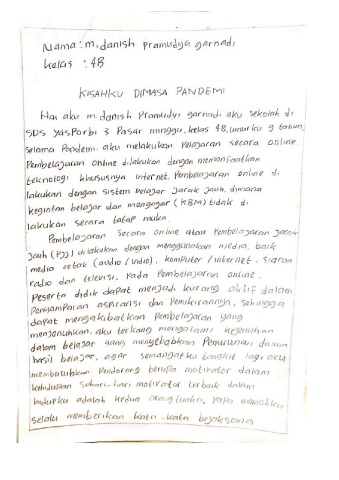 Nama : m. danish pramudya garnadi
kelas : 4B
KISAHKU DIMASA PANDEMI
Hai aku m. danish Pramudyi garnadi aku sekolah di
SDS Yasporbi 3 Pasar minggu, kelas 4B, umurku 9 tahun,
selama Pandemi aku melakukan Pelajaran secara online.
Pembelajaran online dilakukan dengan memanfaatkan
teknologi khususnya internet. Pembelajaran online di
lakukan dengan sistem belajar jarak jauh, dimana
kegiatan belajar dan mengajar (KBM) tidak di
lakukan secara tatap muka.
Pembelajaran secara online atau Pembelajaran jarak
jauh (PJJ) di lakukan dengan menggunakan media, baik
media cetak (audio / vidio), komputer / internet, siaran
radio dan televisi, Pada Pembelajaran online,
Peserta didik dapat menjadi kurang aktif dalam
Penyampaian aspirasi dan Pemikirannya, sehingga
dapat mengakibatkan Pembelajaran yang
menjenuhkan. aku terkang mengalami kejenuhan
dalam belajar yang menyebabkan Penurunan dalam
hasil belajar. agar semangatku bangkit lagi aku
membutuhkan Pendorong berupa motivator dalam
kehidupan sehari-hari motivator terbaik dalam
hidupku adalah kedua orang tuaku. Papa mamahku
selalu memberikan kata-kata bijaksana